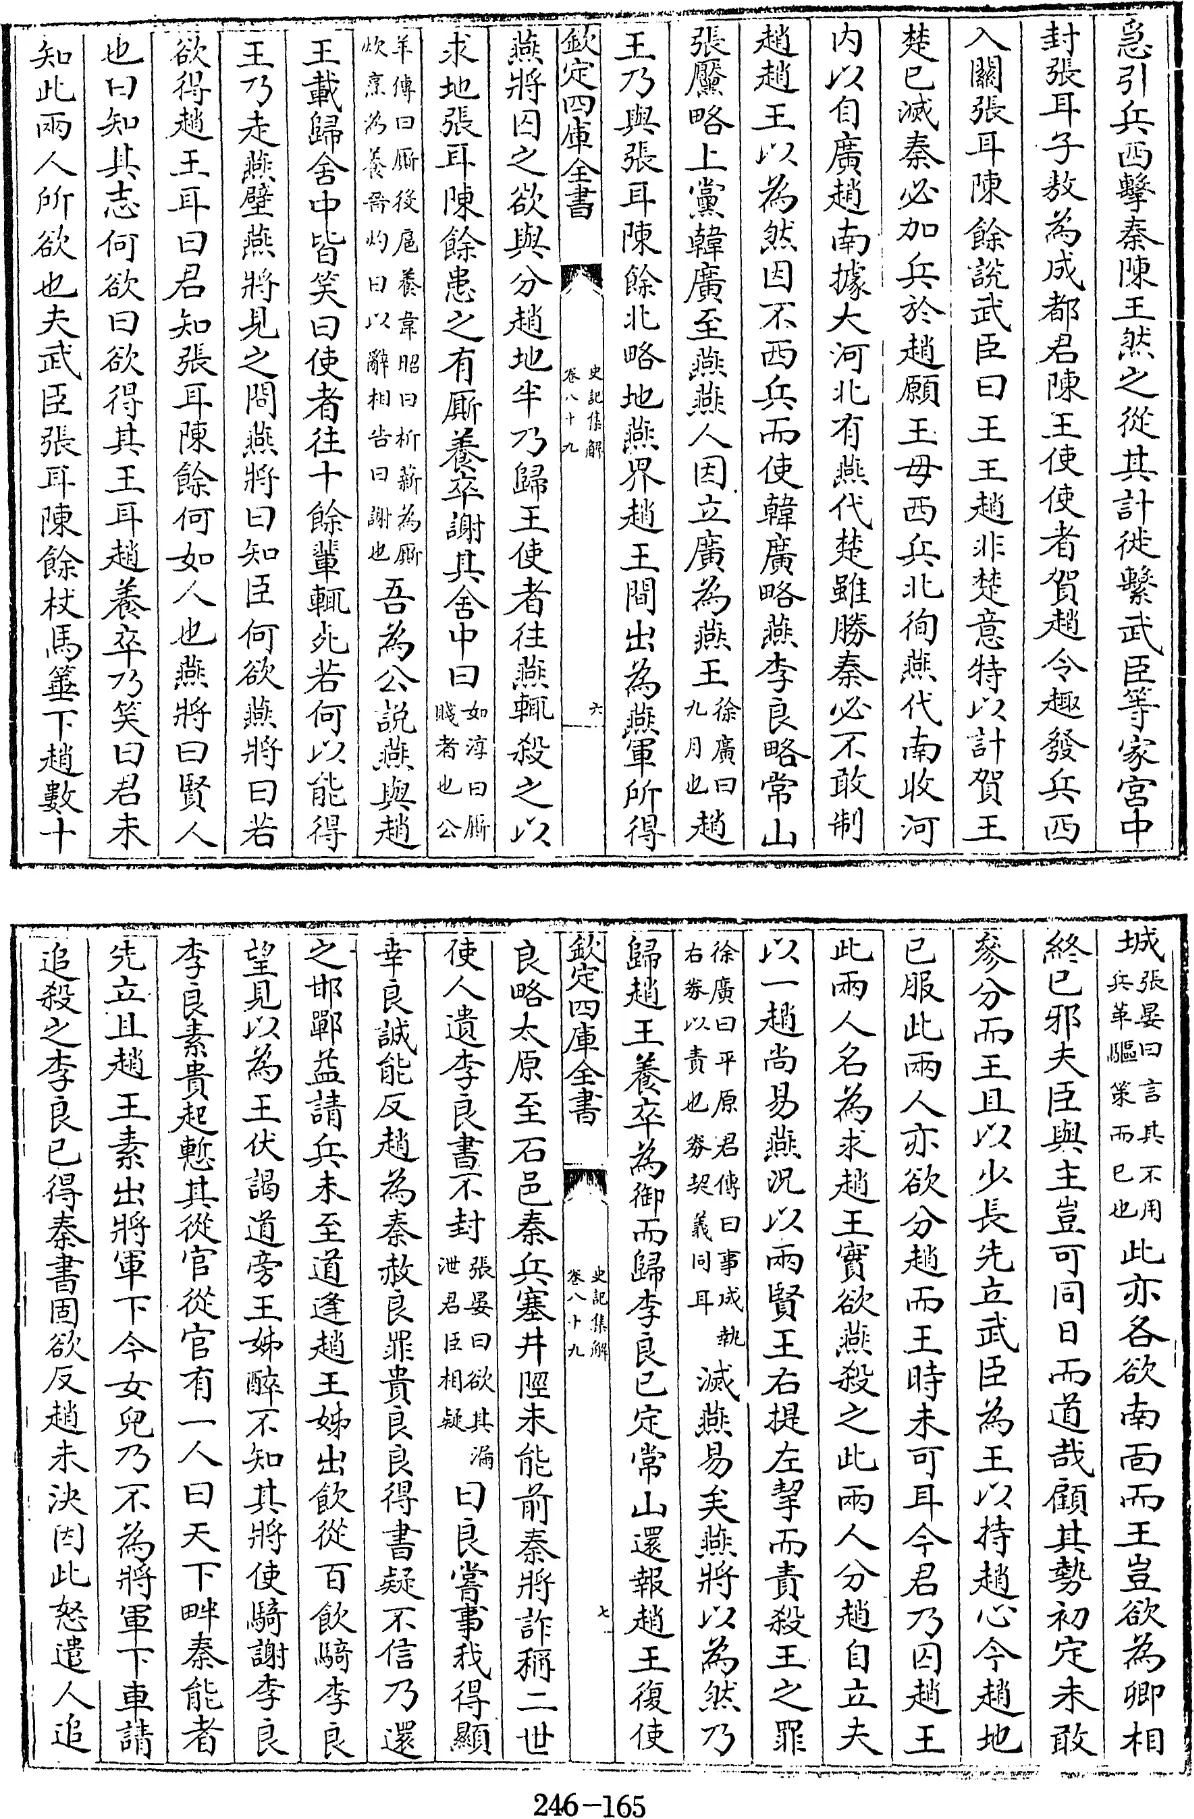 急引兵西擊秦陳王然之從其計徙繫武臣等家宮中
封張耳子敖為成都君陳王使使者賀趙令趣發兵西
入關張耳陳餘說武臣曰王王趙非楚意特以計賀王
楚已滅秦必加兵於趙願王毋西兵北徇燕代南收河
内以自廣趙南據大河北有燕代楚雖勝秦必不敢制
趙趙王以為然因不西兵而使韓廣略燕李良略常山
張黶略上黨韓廣至燕燕人因立廣為燕王徐廣曰九月也趙
王乃與張耳陳餘北略地燕界趙王間出為燕軍所得
欽定四庫全書
史記集解
卷八十九
六
燕將囚之欲與分趙地半乃歸王使者往燕輒殺之以
求地張耳陳餘患之有厮養卒謝其舍中曰如淳曰厮賤者也公
羊傳曰厮役扈養韋昭曰析薪為厮炊烹為養晉灼曰以辭相告曰謝也吾為公說燕與趙
王載歸舍中皆笑曰使者往十餘輩輒死若何以能得
王乃走燕壁燕將見之問燕將曰知臣何欲燕將曰若
欲得趙王耳曰君知張耳陳餘何如人也燕將曰賢人
也曰知其志何欲曰欲得其王耳趙養卒乃笑曰君未
知此兩人所欲也夫武臣張耳陳餘杖馬箠下趙數十
城張晏曰言其不用兵革驅策而已也此亦各欲南面而王豈欲為卿相
終已邪夫臣與主豈可同日而道哉顧其勢初定未敢
參分而王且以少長先立武臣為王以持趙心今趙地
已服此兩人亦欲分趙而王時未可耳今君乃囚趙王
此兩人名為求趙王實欲燕殺之此兩人分趙自立夫
以一趙尚易燕況以兩賢王右提左挈而責殺王之罪
徐廣曰平原君傳曰事成執右劵以責也劵契義同耳滅燕易矣燕將以為然乃
歸趙王養卒為御而歸李良已定常山還報趙王復使
欽定四庫全書
史記集解
卷八十九
七
良略太原至石邑秦兵塞井陘未能前秦將詐稱二世
使人遺李良書不封張晏曰欲其漏泄君臣相疑曰良嘗事我得顯
幸良誠能反趙為秦赦良罪貴良良得書疑不信乃還
之邯鄲益請兵未至道逢趙王姊出飲從百餘騎李良
望見以為王伏謁道旁王姊醉不知其將使騎謝李良
李良素貴起慙其從官從官有一人曰天下畔秦能者
先立且趙王素出將軍下今女兒乃不為將軍下車請
追殺之李良已得秦書固欲反趙未決因此怒遣人追
246-165